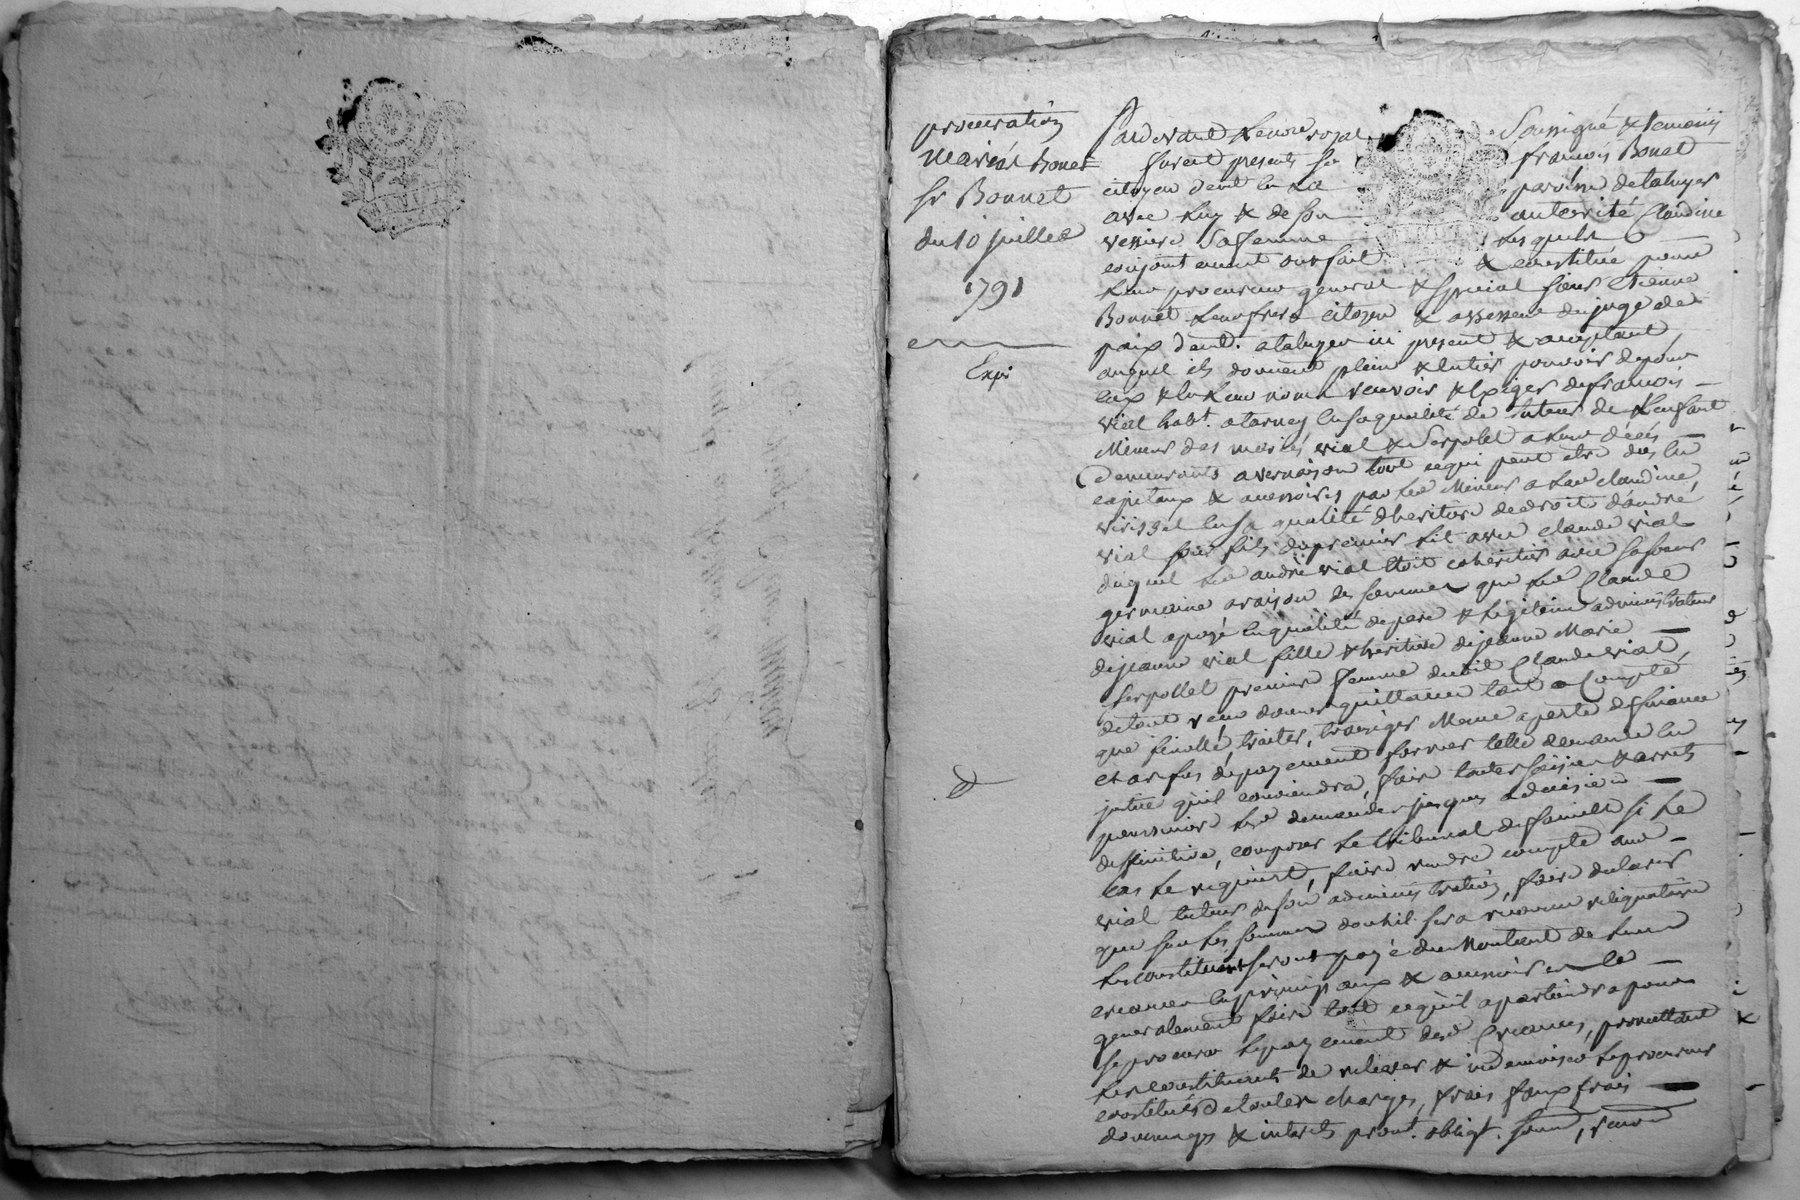 procuration
mariés Bonet
Sr Bonnet
du 10 juillet
1791
Exp.
Pardevant le no.re royal soussigné & temoins
furent presents Sr françois Bonet
citoyen demt en la paroisse de taluyer
avec luy & de son autorité Claudine
sa femme lesquels
conjointement ont fait & constitué pour
leur procureur general & special sieur Etienne
Bonnet leur frere citoyen & assesseur du juge de
paix demt. a taluyer ici present & acceptant
auquel ils donnent plein & entier pouvoir de pour
eux & en leur nom recevoir & exiger de françois
vial habt. a en sa qualité de tuteur de l'enfant
Mineur des mariés vial & Serpolet a leur décès
demeurants a vernaison tout ce qui peut etre dû en
capitaux & accessoires par led Mineur a lad claudine
en sa qualité d'heritiere de droit d'andré
vial son fils du premier lit avec claude vial
duquel led andré vial etoit cohéritier avec sa soeur
germaine a raison des sommes que led Claude
vial a payé en qualité de pere & legitime administrateur
de jeanne vial fille & heritiere de jeanne Marie
Serpollet premiere femme dudit Claude vial,
de tout reçu donner quittance tant a compte
que finalle, traiter, transiger Meme a perte de finance
et a refus de payement former telle demande en
justice qu'il conviendra, faire toutes saisies & arrets
poursuivre led demandes jusques a decision
deffinitive, composer le tribunal de famille si le
cas le requiert, faire rendre compte aud
vial tuteur de son administration, faire declarer
que sur les sommes dont il sera reconnu reliquataire
les constituants seront payé du Montant de leurs
creances en principaux & accessoires et
generalement faire tout ce qu'il apartiendra pour
se procurer le payement desd Creances, promettant
les constituants de relever & indemniser le procureur
constitué de toutes charges, frais faux frais
dommages & interets promt. obligt. soum, renon